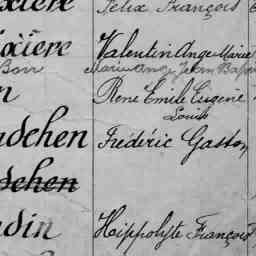 Félix François
ixière Valentin Ange Marie
Boir Marie Ange Jean Bap
n René Emile Eugène
Louis
dchen Frédéric Gaston
dchen
din Hippolyte François